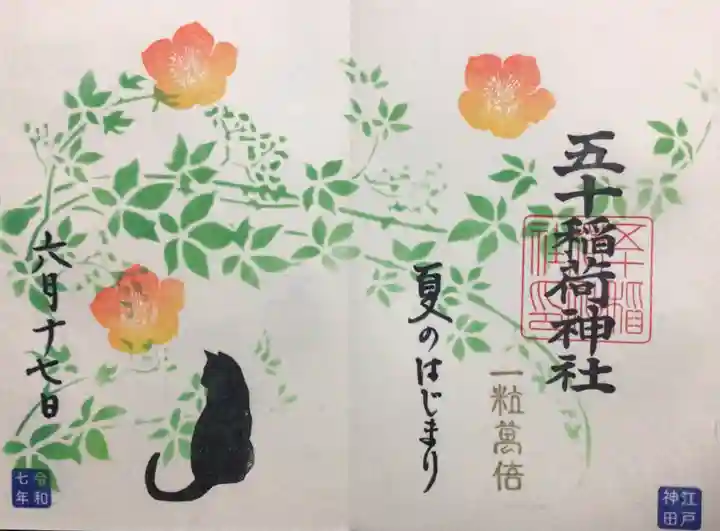 五十稲荷神社
夏のはじまり
一粒萬倍
江戸
神田
六月十七日
令和
七年